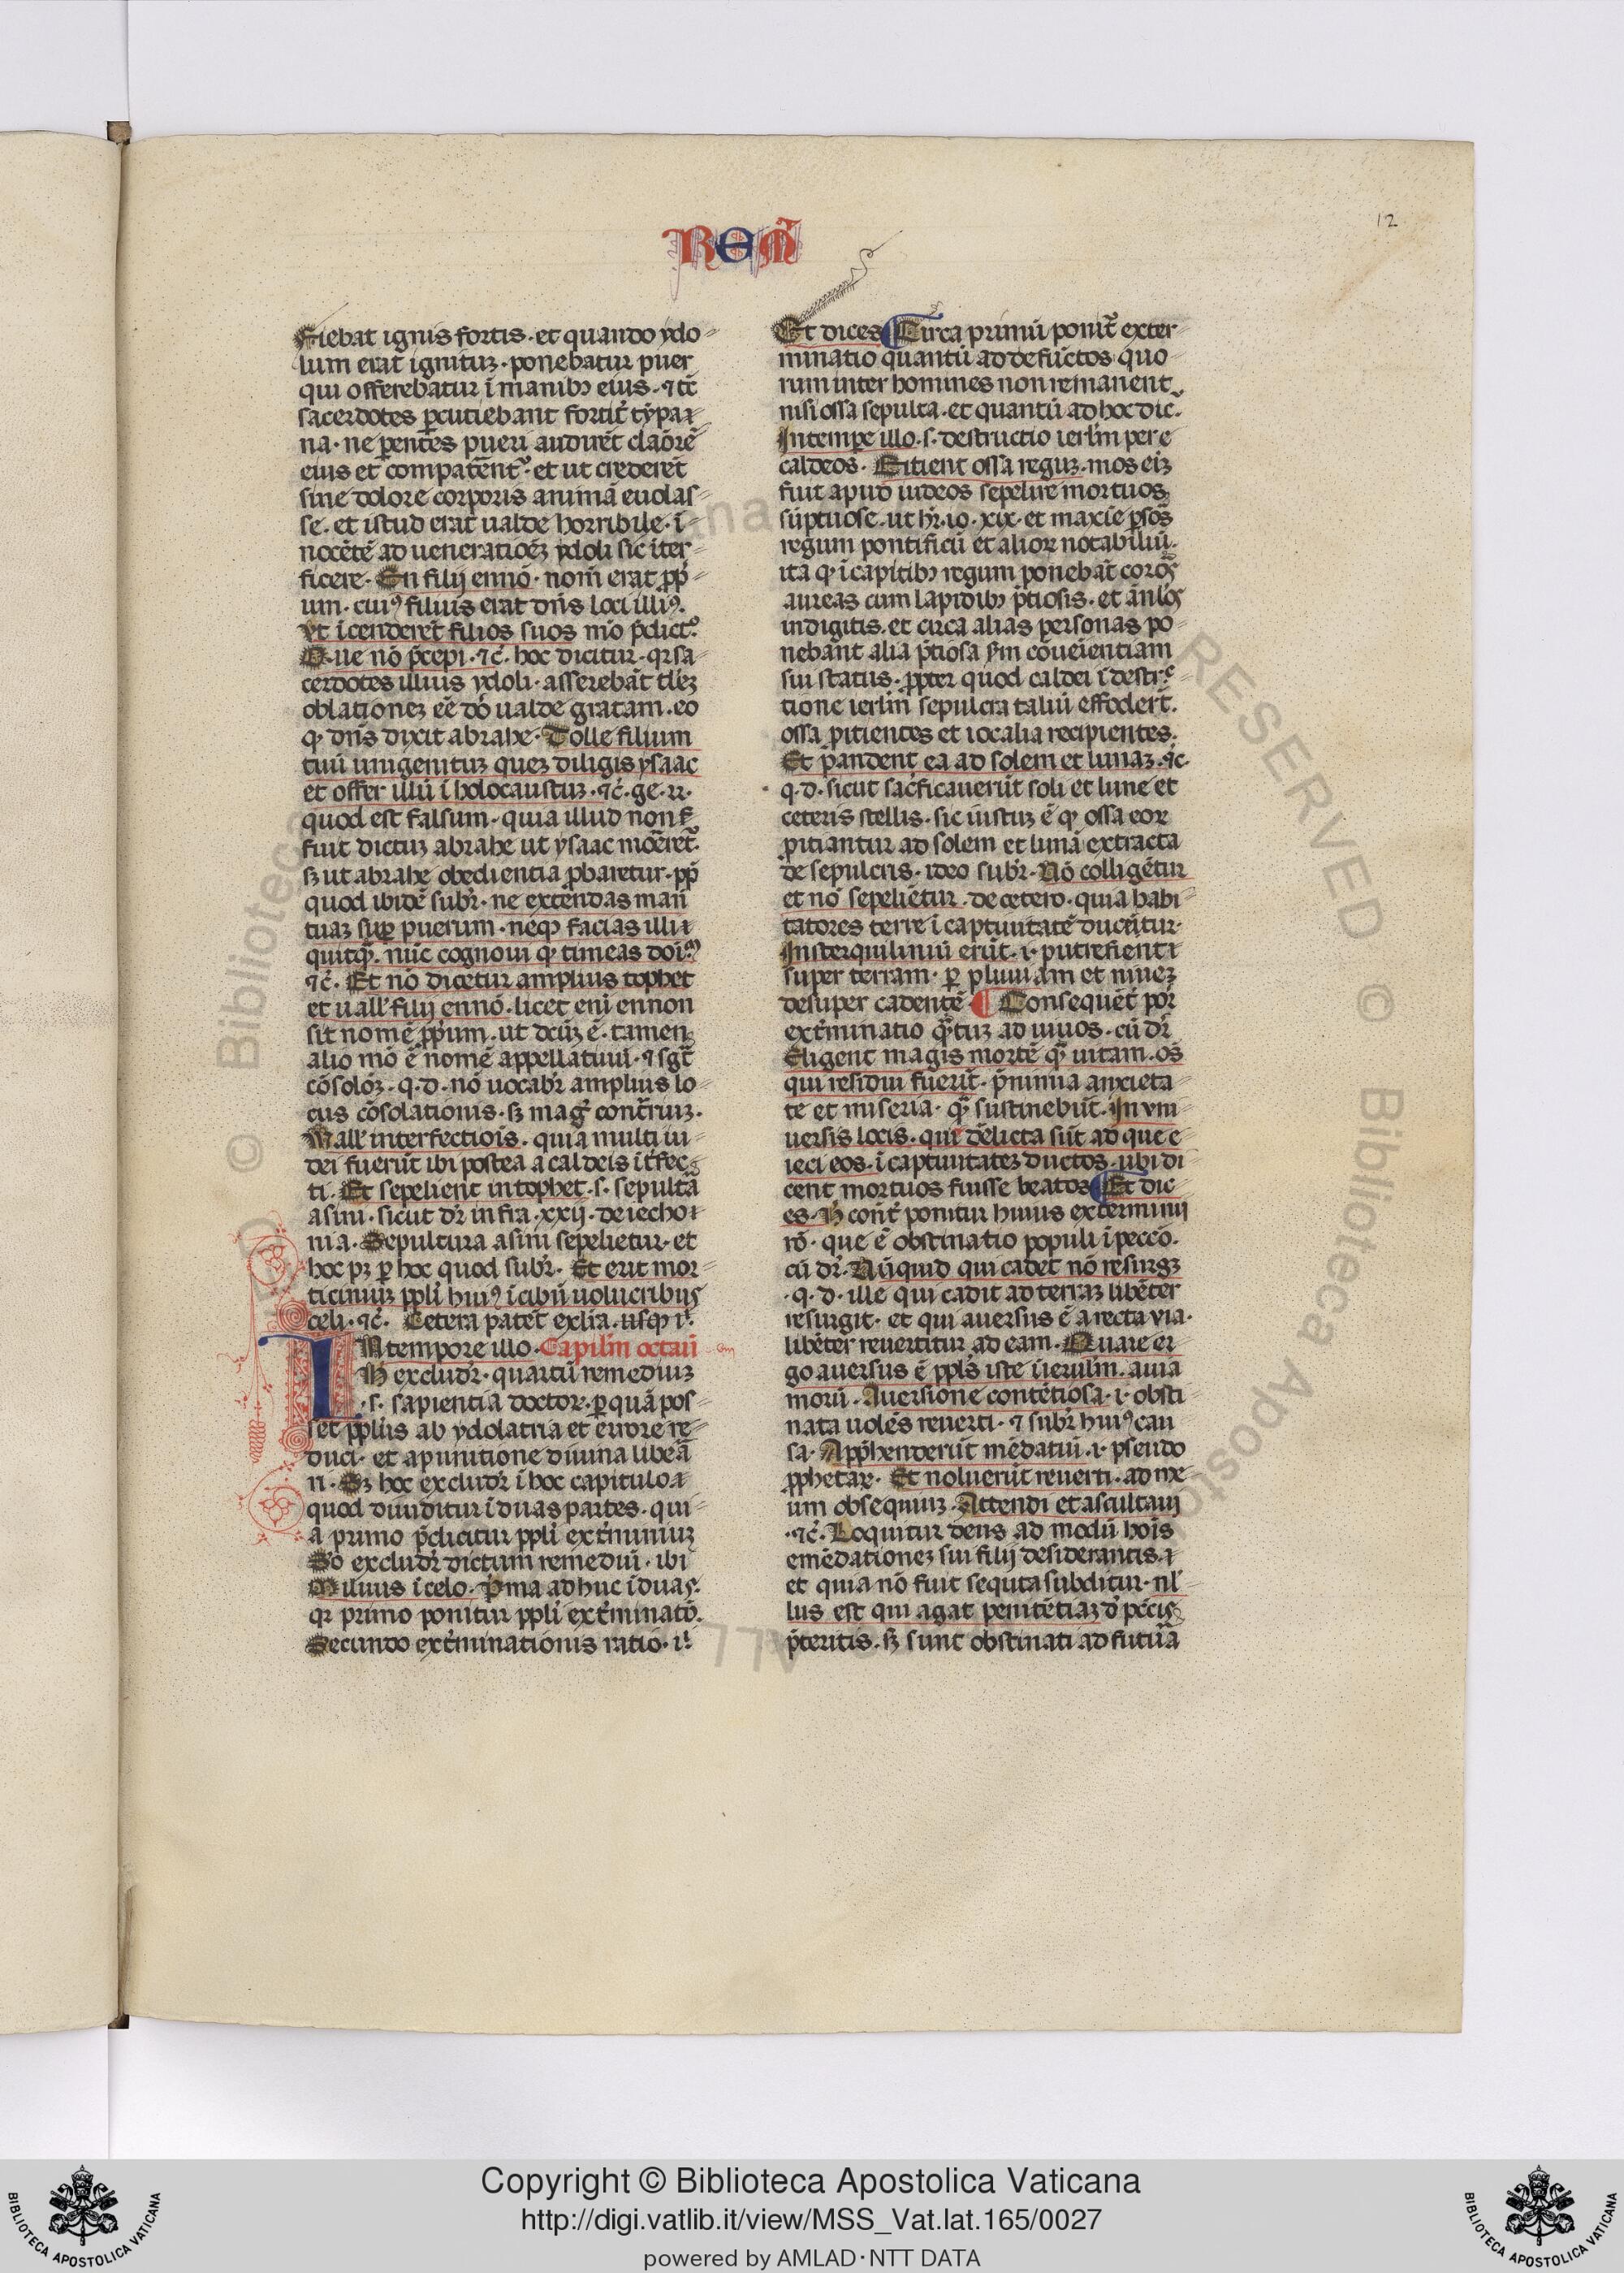 12
REM̃
Fiebat ignis fortis · et quando ydo
lum erat ignituꝫ · ponebatur puer
qui offerebatur ī manibꝰ eius · ⁊ tc̄
sacerdotes ꝑcutiebant fortit̄ tỳpa
na · ne ꝑentes pueri audirēt claōrē
eius et compatēnt᷑ · et ut crederēt
sine dolore corporis animā euolas
se · et istud erat ualde horribile · ī
nocētē ad ueneratioēꝫ ydoli sic īter
ficere · En filij ennō · nom̄ erat ꝓp̄
um · cuiꝰ filius erat dn̄s loci illiꝰ ·
Vt īcenderēt filios suos mō p̄dictꝰ
Que nō p̄cepi · ⁊c̄ · hoc dicitur · qꝛ sa
cerdotes illius ydoli · asserebāt tl̄eꝫ
oblationeꝫ eē dō ualde gratam · eo
ꝙ dn̄s dixit abrahe · Tolle filium
tuū unigenituꝫ queꝫ diligis ysaac
et offer illū ī holocaustuꝫ · ⁊c̄ · ge · 22 ·
quod est falsum · quia illud non
fuit dictuꝫ abrahe ut ysaac moēret᷑ ·
sꝫ ut abrahe obedientia ꝓbaretur · ꝓp̄
quod ibidē subr̄ · ne extendas man̄
tuaꝫ suꝑ puerum · neqꝫ facias illi
quitqꝫ · nūc cognoui ꝙ timeas doīꝫ
⁊c̄ · Et nō dicetur amplius tophet
et uall̄ filij ennō · licet eni ennon
sit nomē ꝓp̄um · ut dcūꝫ ē · tamen
alio mō ē nomē appellatiuū · ⁊ sḡt
cōsoloꝫ · q · d · nō uocabr̄ amplius lo
cus cōsolationis · sꝫ mag᷒ contr̄iuꝫ ·
Vall̄ interfectiois · quia multi iu
dei fuerūt ibi postea a caldeis īt̄fec
ti · Et sepelient in tophet · s · sepultā
asini · sicut dr̄ infra · xxij · de iecho
nia · Sepultura asini sepelietur · et
hoc pꝫ ꝑ hoc quod subr̄ · Et erit mor
ticinuꝫ ppl̄i huiꝰ ī cibū uolucribus
celi · ⁊c̄ · Cetera patēt ex lr̄a · usqꝫ i᷒ ·
IN tempore illo · Capitl̄m octauū
H excludr̄ · quartū remediuꝫ
· s · sapientia doctoꝝ · ꝑ quā pos
set ppl̄us ab ydolatria et errore re
duci · et a punitione diuina libeā
ri · Sꝫ hoc excludr̄ ī hoc capitulo
quod diuiditur ī duas partes · qui
a primo p̄dicitur ppl̄i ext̄miniuꝫ
S̄o excludr̄ dictum remediū · ibi
Miluus ī celo · P̄ma adhuc ī duas ·
qꝛ primo ponitur ppl̄i ext̄minatō ·
Secundo ext̄minationis ratio · i᷒
Et dices · Circa primū ponit᷑ exter
minatio quantū ad defūctos quo
rum inter homines non remanent
nisi ossa sepulta · et quantū ad hoc dic᷑
In temꝑe illo · s · destructio ierl̄m per
caldeos · Eitient ossa reguꝫ · mos ei
fuit apud iudeos sepelire mortuos
sūptuose · ut hr̄ · io · xix · et maxīe ꝑsōs
regum pontificū et alioꝝ notabiliū ·
ita ꝙ ī capitibꝰ regum ponebāt corōs
aureas cum lapidibꝰ p̄tiosis · et ānl̄os
in digitis · et circa alias personas po
nebant alia p̄tiosa ẜm cōueīentiam
sui status · ꝓpter quod caldei ī destr᷒
tione ierl̄m sepulcra taliū effodert̄ ·
ossa ꝓitientes et iocalia recipientes ·
Et pandent ea ad solem et lunaꝫ · ⁊c ·
q · d · sicut sac̄ficauerūt soli et lune et
ceteris stellis · sic iustuꝫ ē ꝙ ossa eoꝝ
ꝓitiantur ad solem et lunā extracta
de sepulcris · ideo subr̄ · Nō colligētur
et nō sepeliētur · de cetero · quia habi
tatores terre ī captiuitatē ducūtur ·
In sterquiliniū erūt · i · putrefient
super terram · ꝑ pluuiam et niueꝫ
desuper cadentē ¶ Consequēt᷑ por̄
ext̄minatio q̄tuꝫ ad uiuos · cū dr̄
Eligent magis mortē q̄ uitam · oēs
qui residui fuerīt · p̄ nimia anxieta
te et miseria · q̄ sustinebūt · In vni
uersis locis · qui delicta sūt ad que e
ieci eos · ī captiuitateꝫ ductos · ubi di
cent mortuos fuisse beatos Et dic
es · H̄ cont̄ ponitur huius exterminii
rō · que ē obstinatio populi ī peccō ·
cū dr̄ · Nūquid qui cadet nō resurgꝫ
· q · d · ille qui cadit ad terraꝫ libēter
resurgit · et qui auersus ē a recta via ·
libēter reuertitur ad eam · Quare er
go auersus ē ppl̄s iste ī ierusl̄m · a uia
morū · Auersione contētiosa · i · obsti
nata uolēs reuerti · ⁊ subr̄ huiꝰ cau
sa · App̄henderūt mēdatiū · i · pseudo
ꝓphetaꝝ · Et noluerūt reuerti · ad me
um obsequiuꝫ · Attendi et ascultaui
· ⁊c̄ · Loquitur deus ad modū hois
emēdationeꝫ sui filij desiderantis ·
et quia nō fuit sequta subditur · nl̄
lus est qui agat penitētiaꝫ d᷒ pcc̄is
p̄teritis · sꝫ sunt obstinati ad futur̄a
© Biblioteca Apostolica Vaticana
RESERVED
Copyright © Biblioteca Apostolica Vaticana
http://digi.vatlib.it/view/MSS_Vat.lat.165/0027
powered by AMLAD·NTT DATA
BIBLIOTECA APOSTOLICA VATICANA
BIBLIOTECA APOSTOLICA VATICANA